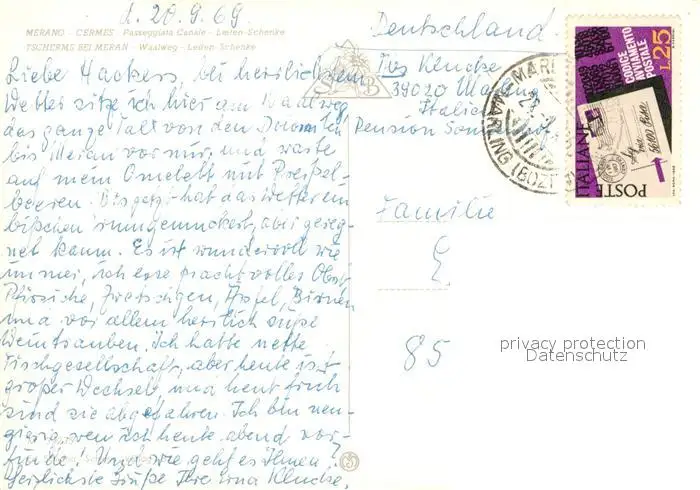 d. 20.9.69.
MERANO - CERMES Passeggiata Canale - Leiten-Schenke
TSCHERMS BEI MERAN Waalweg - Leiten-Schenke
Liebe Hackers, bei herrlichstem
Wetter sitze ich hier am Waalweg,
das ganze Tal von den Dolomiten
bis Meran vor mir, und warte
auf mein Omelett mit Preißel-
beeren. Bis jetzt hat das Wetter ein
bißchen rumgemuckert, aber gereg-
net kaum. Es ist wundervoll wie
immer, ich esse prachtvolles Obst
Pfirsiche, Zwetschgen, Äpfel, Birnen
und vor allem herrlich süße
Weintrauben. Ich hatte nette
Tischgesellschaft, aber heute ist
großer Wechsel, und heut früh
sind sie abgefahren. Ich bin neu-
gierig, wen ich heute abend vor-
finde! Und wie geht es Ihnen?
Herzlichste Grüße Ihre Erna Klucke.
Deutschland
Klucke
39020 Marling
Italien
Pension
Familie
E
85
SB
MARLING (BOZ
L.25
CODICE
AVVIAMENTO
POSTALE
POSTE
ITALIANE
privacy protection
Datenschutz